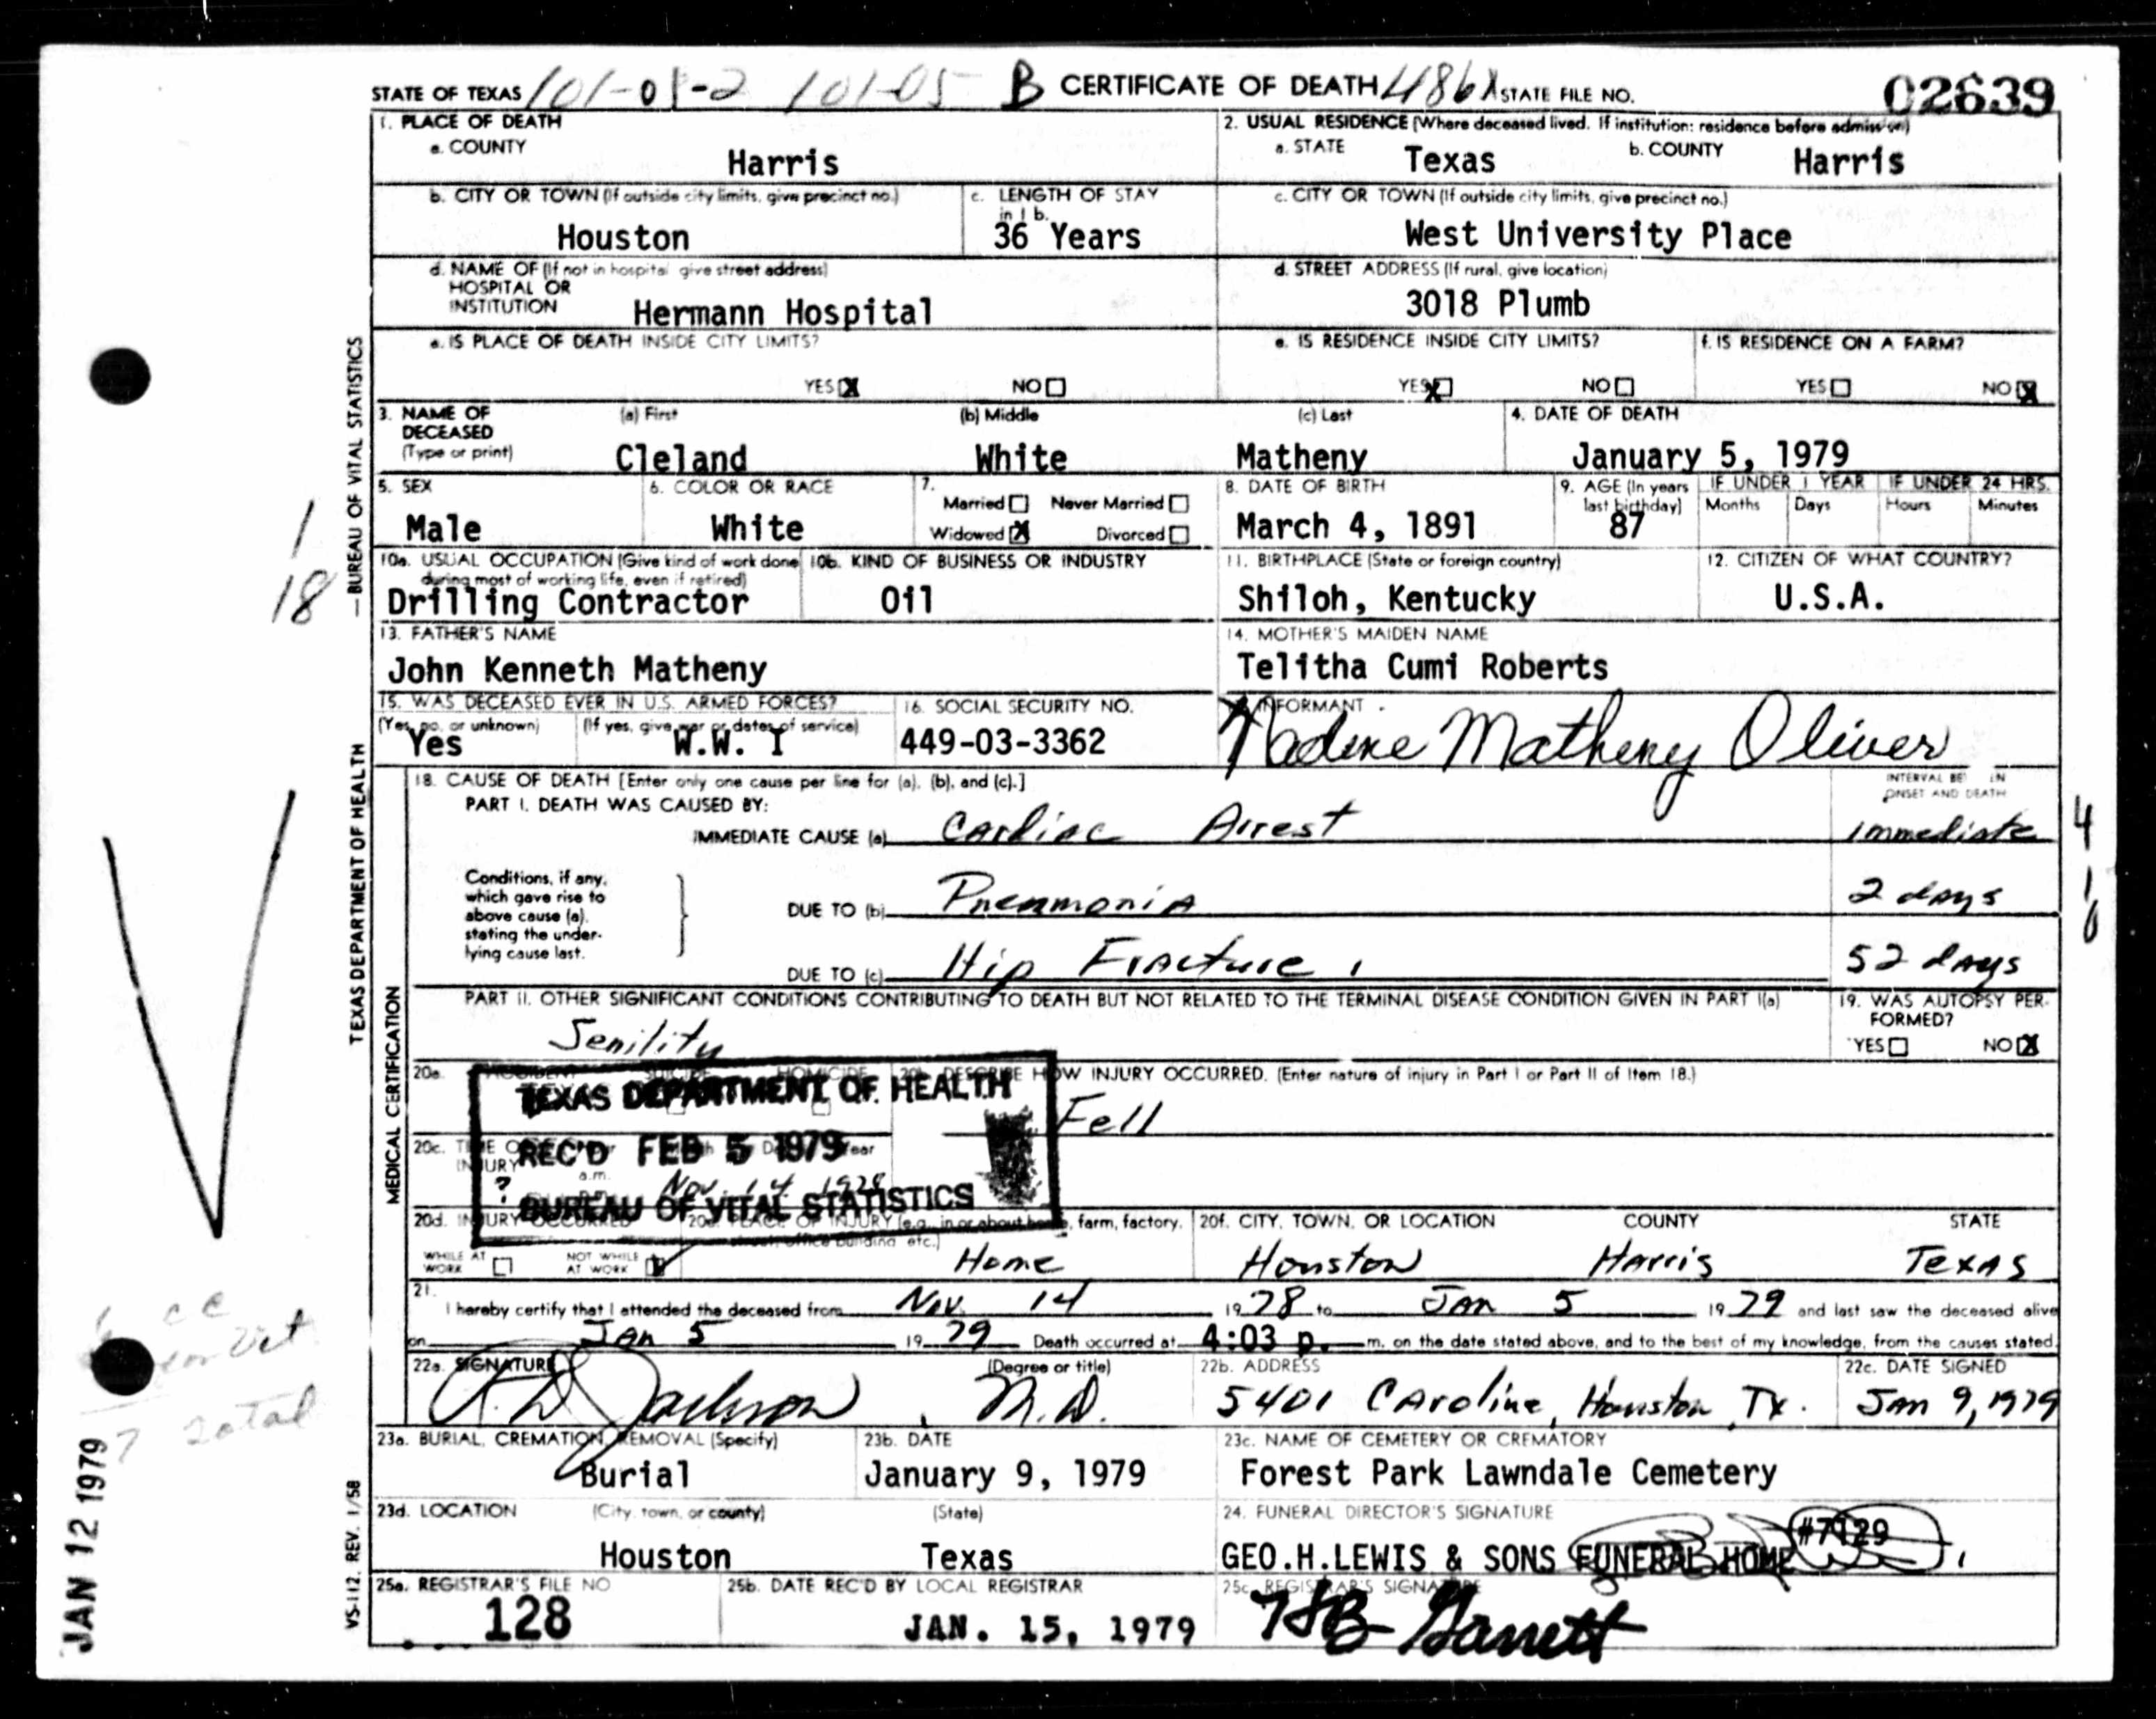 STATE OF TEXAS 101-01-2 101-05 B CERTIFICATE OF DEATH 486X STATE FILE NO. 02639
1. PLACE OF DEATH
a. COUNTY
Harris
2. USUAL RESIDENCE (Where deceased lived. If institution: residence before admission)
a. STATE Texas b. COUNTY Harris
b. CITY OR TOWN (If outside city limits, give precinct no.)
Houston
c. LENGTH OF STAY
in 1 b.
36 Years
c. CITY OR TOWN (If outside city limits, give precinct no.)
West University Place
d. NAME OF (If not in hospital give street address)
HOSPITAL OR
INSTITUTION Hermann Hospital
d. STREET ADDRESS (If rural, give location)
3018 Plumb
e. IS PLACE OF DEATH INSIDE CITY LIMITS?
YES X NO
e. IS RESIDENCE INSIDE CITY LIMITS?
YES X NO
f. IS RESIDENCE ON A FARM?
YES NO X
3. NAME OF
DECEASED
(Type or print)
(a) First (b) Middle (c) Last
Cleland White Matheny
4. DATE OF DEATH
January 5, 1979
5. SEX
Male
6. COLOR OR RACE
White
7.
Married Never Married
Widowed X Divorced
8. DATE OF BIRTH
March 4, 1891
9. AGE (In years
last birthday)
87
IF UNDER 1 YEAR IF UNDER 24 HRS.
Months Days Hours Minutes
10a. USUAL OCCUPATION (Give kind of work done
during most of working life, even if retired)
Drilling Contractor
10b. KIND OF BUSINESS OR INDUSTRY
Oil
11. BIRTHPLACE (State or foreign country)
Shiloh, Kentucky
12. CITIZEN OF WHAT COUNTRY?
U.S.A.
13. FATHER'S NAME
John Kenneth Matheny
14. MOTHER'S MAIDEN NAME
Telitha Cumi Roberts
15. WAS DECEASED EVER IN U.S. ARMED FORCES?
(Yes, no, or unknown) (If yes, give war or dates of service)
Yes W.W. I
16. SOCIAL SECURITY NO.
449-03-3362
INFORMANT
Nadine Matheny Oliver
18. CAUSE OF DEATH [Enter only one cause per line for (a), (b), and (c).]
INTERVAL BE IN
ONSET AND DEATH
PART I. DEATH WAS CAUSED BY:
IMMEDIATE CAUSE (a) Cardiac Arrest immediate
Conditions, if any,
which gave rise to
above cause (a),
stating the under-
lying cause last.
DUE TO (b) Pneumonia 2 days
DUE TO (c) Hip Fracture 52 days
PART II. OTHER SIGNIFICANT CONDITIONS CONTRIBUTING TO DEATH BUT NOT RELATED TO THE TERMINAL DISEASE CONDITION GIVEN IN PART I(a)
Senility
19. WAS AUTOPSY PER-
FORMED?
YES NO X
20a. ACCIDENT SUICIDE HOMICIDE
20b. DESCRIBE HOW INJURY OCCURRED. (Enter nature of injury in Part I or Part II of Item 18.)
Fell
TEXAS DEPARTMENT OF HEALTH
REC'D FEB 5 1979
BUREAU OF VITAL STATISTICS
20c. TIME OF
INJURY
Year
a.m.
? Nov. 14 1978
20d. INJURY OCCURRED
WHILE AT
WORK
NOT WHILE
AT WORK
20e. PLACE OF INJURY (e.g., in or about home, farm, factory,
street, office building etc.)
Home
20f. CITY, TOWN, OR LOCATION COUNTY STATE
Houston Harris Texas
21.
I hereby certify that I attended the deceased from Nov. 14 1978 to Jan 5 1979 and last saw the deceased alive
on Jan 5 1979 Death occurred at 4:03 p. m. on the date stated above, and to the best of my knowledge, from the causes stated.
22a. SIGNATURE (Degree or title)
Jackson, M.D.
22b. ADDRESS
5401 Caroline, Houston, Tx.
22c. DATE SIGNED
Jan 9, 1979
23a. BURIAL, CREMATION, REMOVAL (Specify)
Burial
23b. DATE
January 9, 1979
23c. NAME OF CEMETERY OR CREMATORY
Forest Park Lawndale Cemetery
23d. LOCATION (City, town, or county) (State)
Houston Texas
24. FUNERAL DIRECTOR'S SIGNATURE
#7129
GEO.H.LEWIS & SONS FUNERAL HOME
25a. REGISTRAR'S FILE NO
128
25b. DATE REC'D BY LOCAL REGISTRAR
JAN. 15, 1979
25c. REGISTRAR'S SIGNATURE
HB Garrett
TEXAS DEPARTMENT OF HEALTH — BUREAU OF VITAL STATISTICS
MEDICAL CERTIFICATION
VS-112. REV. 1/58
JAN 12 1979
1
18
6 cc
7 total
4
1
0